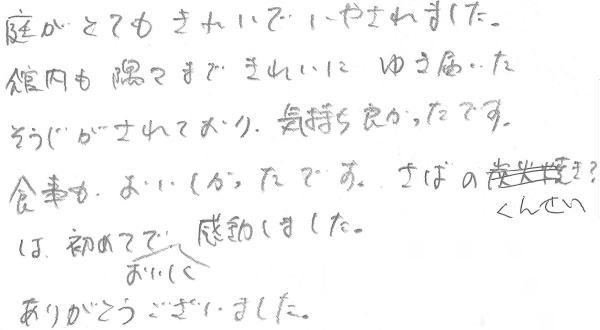 庭がとてもきれいでいやされました。
館内も隅々まできれいにゆき届いた
そうじがされており、気持ち良かったです。
食事も、おいしかったです。さばの炭火焼き?
くんせい
は、初めてで感動しました。
おいしく
ありがとうございました。